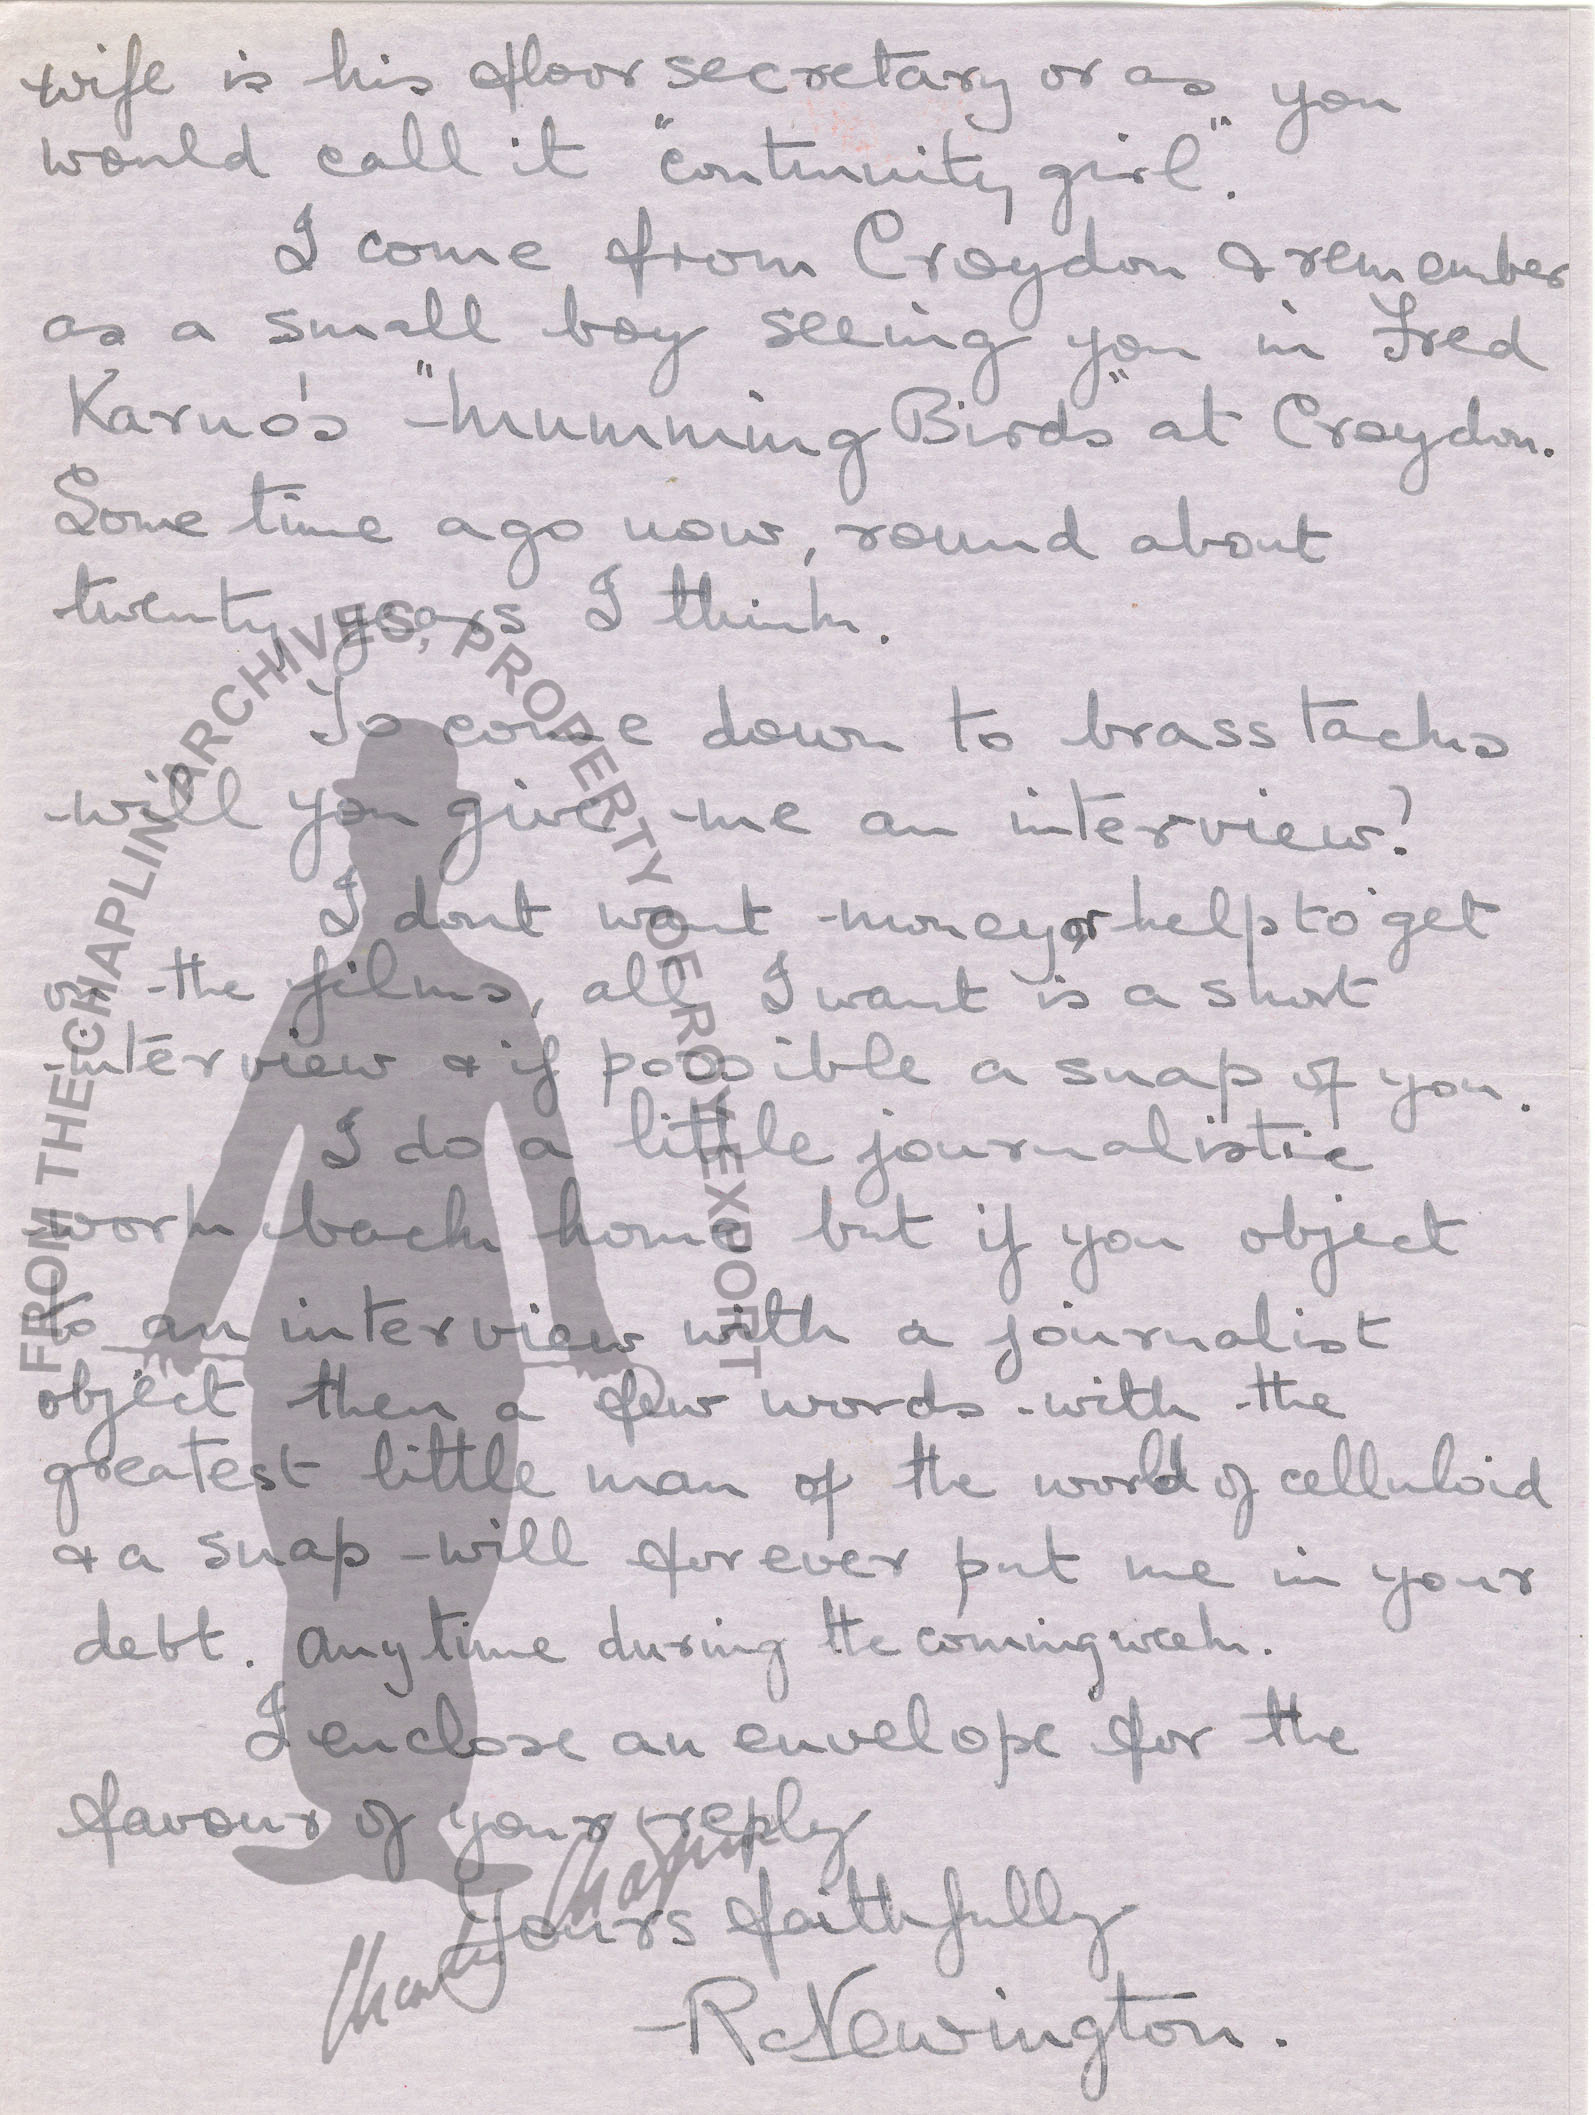 wife is his floor secretary or as you
would call it "continuity girl".
I come from Croydon & remember
as a small boy seeing you in Fred
Karno's "Mumming Birds" at Croydon.
Some time ago now, round about
twenty years I think.
To come down to brass tacks
will you give me an interview?
I dont want money or help to get
in the films, all I want is a short
interview & if possible a snap of you.
I do a little journalistic
work back home but if you object
to an interview with a journalist
object then a few words with the
greatest little man of the world of celluloid
& a snap will forever put me in your
debt. Anytime during the coming week.
I enclose an envelope for the
favour of your reply
Yours faithfully
R Newington.
FROM THE CHAPLIN ARCHIVES, PROPERTY OF ROY EXPORT
Charlie Chaplin